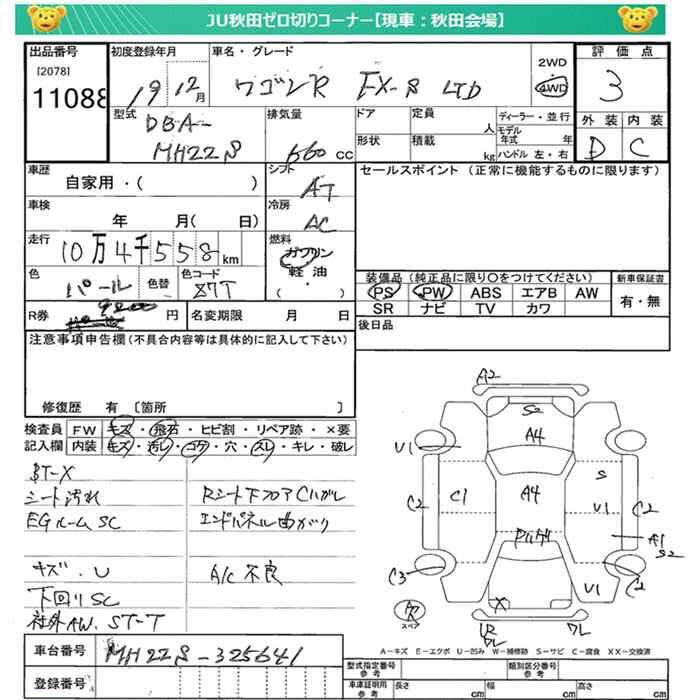 JU秋田ゼロ切りコーナー【現車：秋田会場】
出品番号 初度登録年月 車名・グレード 2WD 評価点
[2078] 19 12月 ワゴンR FX-S LTD 4WD 3
11088
型式 排気量 ドア 定員 人 ディーラー・並行 外装 内装
DBA-
MH22S 660 cc 形状 積載 kg モデル年式 年 ハンドル 左・右 D C
車歴 シフト セールスポイント（正常に機能するものに限ります）
自家用・( ) AT
車検 冷房
年 月( 日) AC
走行 燃料
10万4千558km ガソリン
軽油
・( )
色 色替 色コード 装備品（純正品に限り○をつけてください） 新車保証書
パール Z7T PS PW ABS エアB AW 有・無
SR ナビ TV カワ
R券 円 名変期限 月 日 後日品
9200
注意事項申告欄（不具合内容等は具体的に記入して下さい）
修復歴 有〔箇所 〕
検査員 FW キズ・飛石・ヒビ割・リペア跡・×要
記入欄 内装 キズ・汚レ・コゲ・穴・スレ・キレ・破レ
シート汚れ Rシート下フロアCハガレ
EGルームSC エンドパネル曲がり
キズ.U A/C不良
下回りSC
社外AW. ST-T
A2
S2
A4
U1 S
C2 C1 A4 U1 C2
A1
S2
C3 C2
U1
X
スペア
A−キズ E−エクボ U−凹み W−補修跡 S−サビ C−腐食 XX−交換済
車台番号 MH22S-325641
登録番号
型式指定番号 参考 類別区分番号 参考
車庫証明用 参考 長さ cm 幅 cm 高さ cm